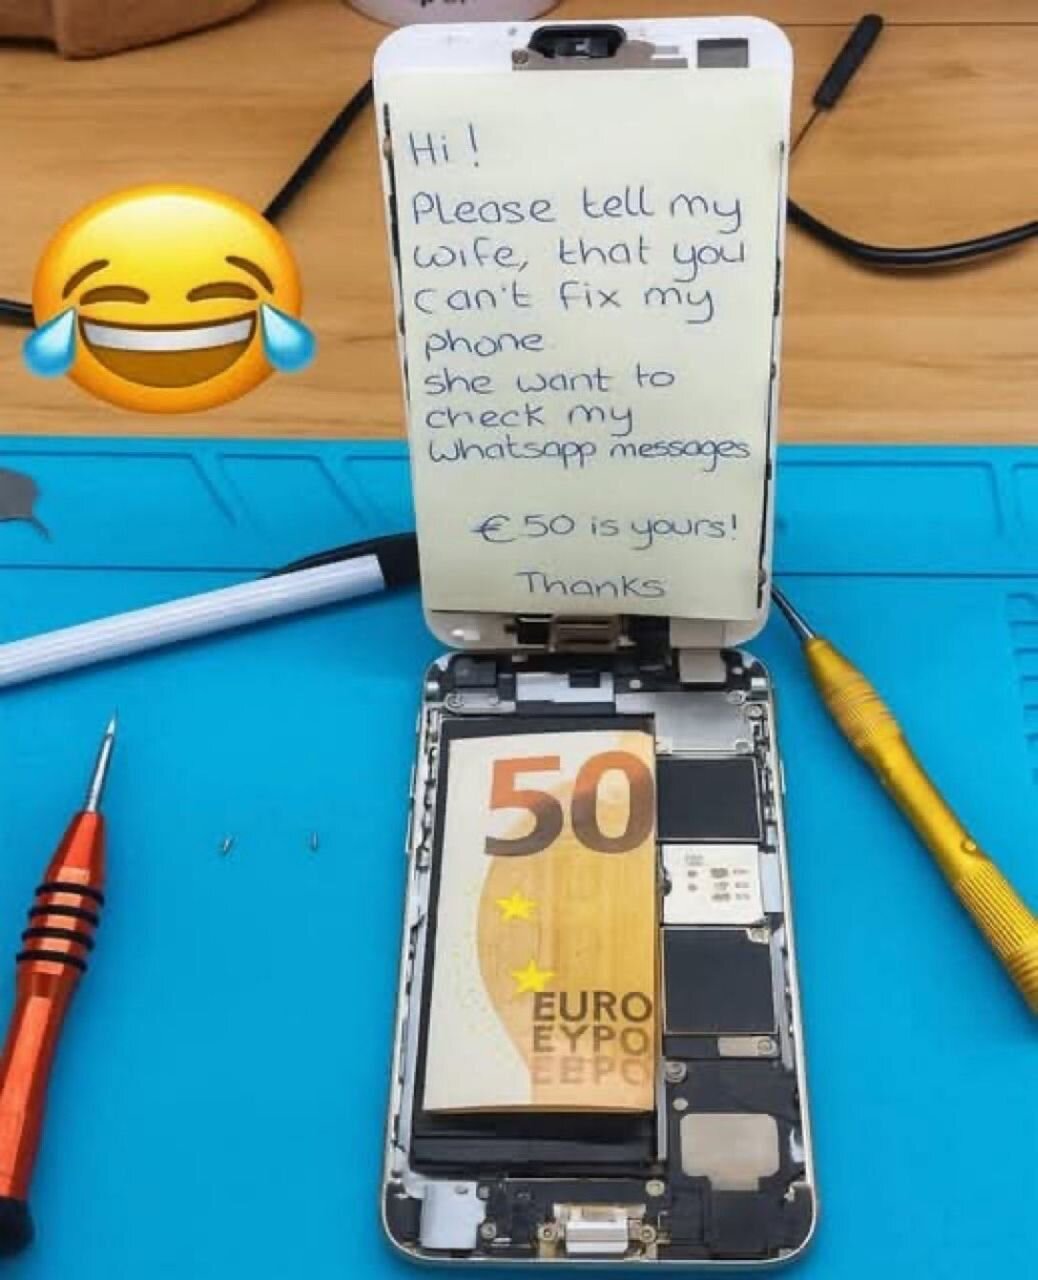 Hi !
Please tell my
wife, that you
can't fix my
phone
she want to
check my
Whatsapp messages
€ 50 is yours!
Thanks
50
EURO
EYPO
EBPO